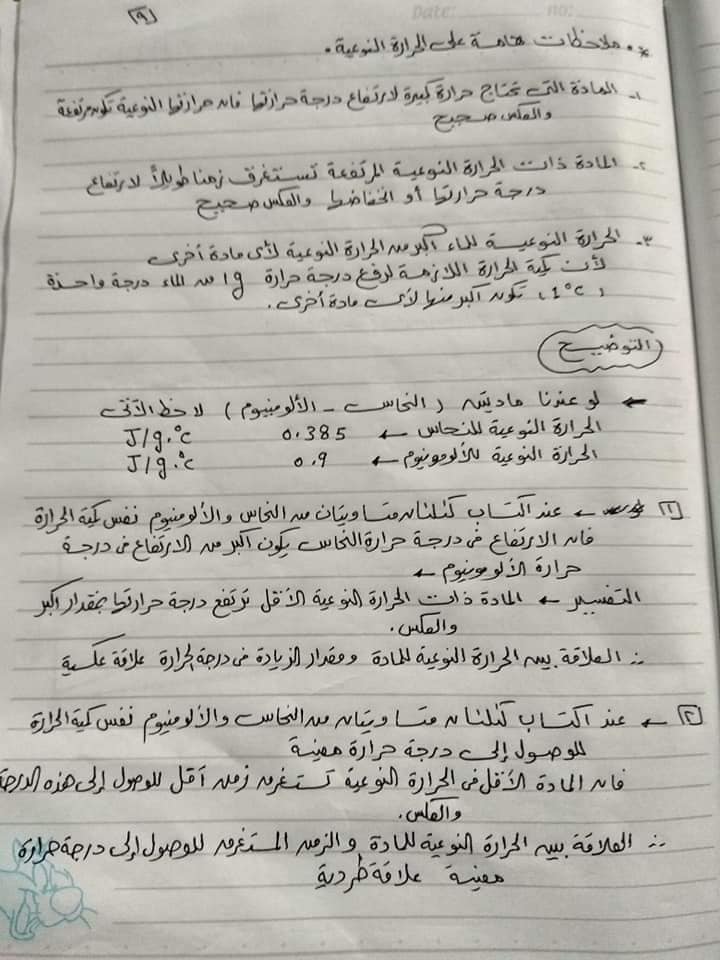 [٩]
Date: no:
* ملاحظات هامة على الحرارة النوعية .
١- المادة التى تحتاج حرارة كبيرة لارتفاع درجة حرارتها فان حرارتها النوعية تكون مرتفعة
والعكس صحيح
٢- المادة ذات الحرارة النوعية المرتفعة تستغرق زمنا طويلاً لارتفاع
درجة حرارتها أو انخفاضها والعكس صحيح
٣- الحرارة النوعية للماء أكبر من الحرارة النوعية لأى مادة أخرى
لأن كمية الحرارة اللازمة لرفع درجة حرارة 1g من الماء درجة واحدة
(1°c) تكون أكبر منها لأى مادة أخرى .
التوضيح
← لو عندنا مادتين (النحاس - الألومنيوم) لاحظ الآتى
الحرارة النوعية للنحاس ← 0.385 J/g.°c
الحرارة النوعية للألومونيوم ← 0.9 J/g.°c
[١] ← عند اكتساب كتلتان متساويتان من النحاس والألومنيوم نفس كمية الحرارة
فان الارتفاع فى درجة حرارة النحاس يكون أكبر من الارتفاع فى درجة
حرارة الألومونيوم ←
التفسير ← المادة ذات الحرارة النوعية الأقل ترتفع درجة حرارتها بمقدار أكبر
والعكس .
∴ العلاقة بين الحرارة النوعية للمادة ومقدار الزيادة فى درجة الحرارة علاقة عكسية
[٢] ← عند اكتساب كتلتان متساويتان من النحاس والألومنيوم نفس كمية الحرارة
للوصول إلى درجة حرارة معينة
فان المادة الأقل فى الحرارة النوعية تستغرق زمن أقل للوصول إلى هذه الدرجة
والعكس .
∴ العلاقة بين الحرارة النوعية للمادة والزمن المستغرق للوصول إلى درجة حرارة
معينة علاقة طردية